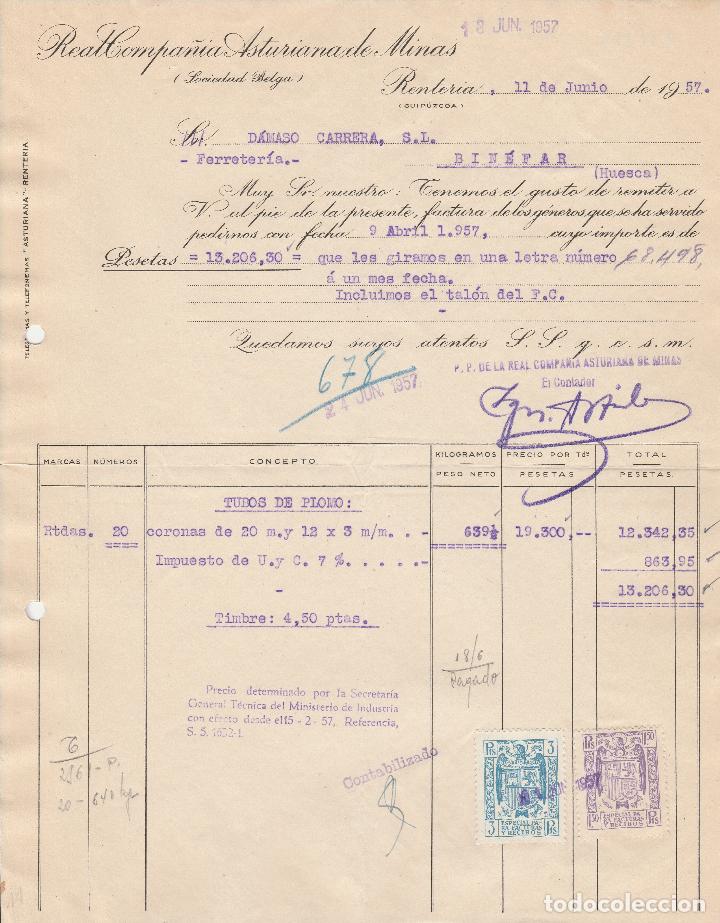 13 JUN. 1957
Real Compañía Asturiana de Minas
(Sociedad Belga)
Rentería, 11 de Junio de 1957.
(GUIPÚZCOA)
DÁMASO CARRERA, S.L.
- Ferretería.- BINÉFAR
(Huesca)
Muy Sr. nuestro: Tenemos el gusto de remitir a
V. al pie de la presente, factura de los géneros que se ha servido
pedirnos con fecha 9 Abril 1.957, cuyo importe es de
Pesetas = 13.206,30 = que les giramos en una letra número 68.498,
á un mes fecha.
Incluimos el talón del F.C.
-
Quedamos suyos atentos S. S. q. e. s. m.
TELEGRAMAS Y TELEFONEMAS "ASTURIANA"-RENTERIA
P. P. DE LA REAL COMPAÑIA ASTURIANA DE MINAS
El Contador
678
24 JUN. 1957
MARCAS NÚMEROS CONCEPTO KILOGRAMOS PRECIO POR Tda TOTAL
PESO NETO PESETAS PESETAS
TUBOS DE PLOMO:
Rtdas. 20 coronas de 20 m. y 12 x 3 m/m. . - 639½ 19.300,-- 12.342,35
Impuesto de U. y C. 7 %. . . . . .- 863,95
- 13.206,30
Timbre: 4,50 ptas.
18/6
Pagado
Precio determinado por la Secretaría
General Técnica del Ministerio de Industria
con efecto desde el 15 - 2 - 57, Referencia,
S. 5. 1632-1.
20 - 640 kg
Contabilizado
Pts 3
3 Pts
ESPECIAL PA-
RA FACTURAS
Y RECIBOS
Pts 1,50
1,50 Pts
ESPECIAL PA-
RA FACTURAS
Y RECIBOS
JUN 1957
todocoleccion